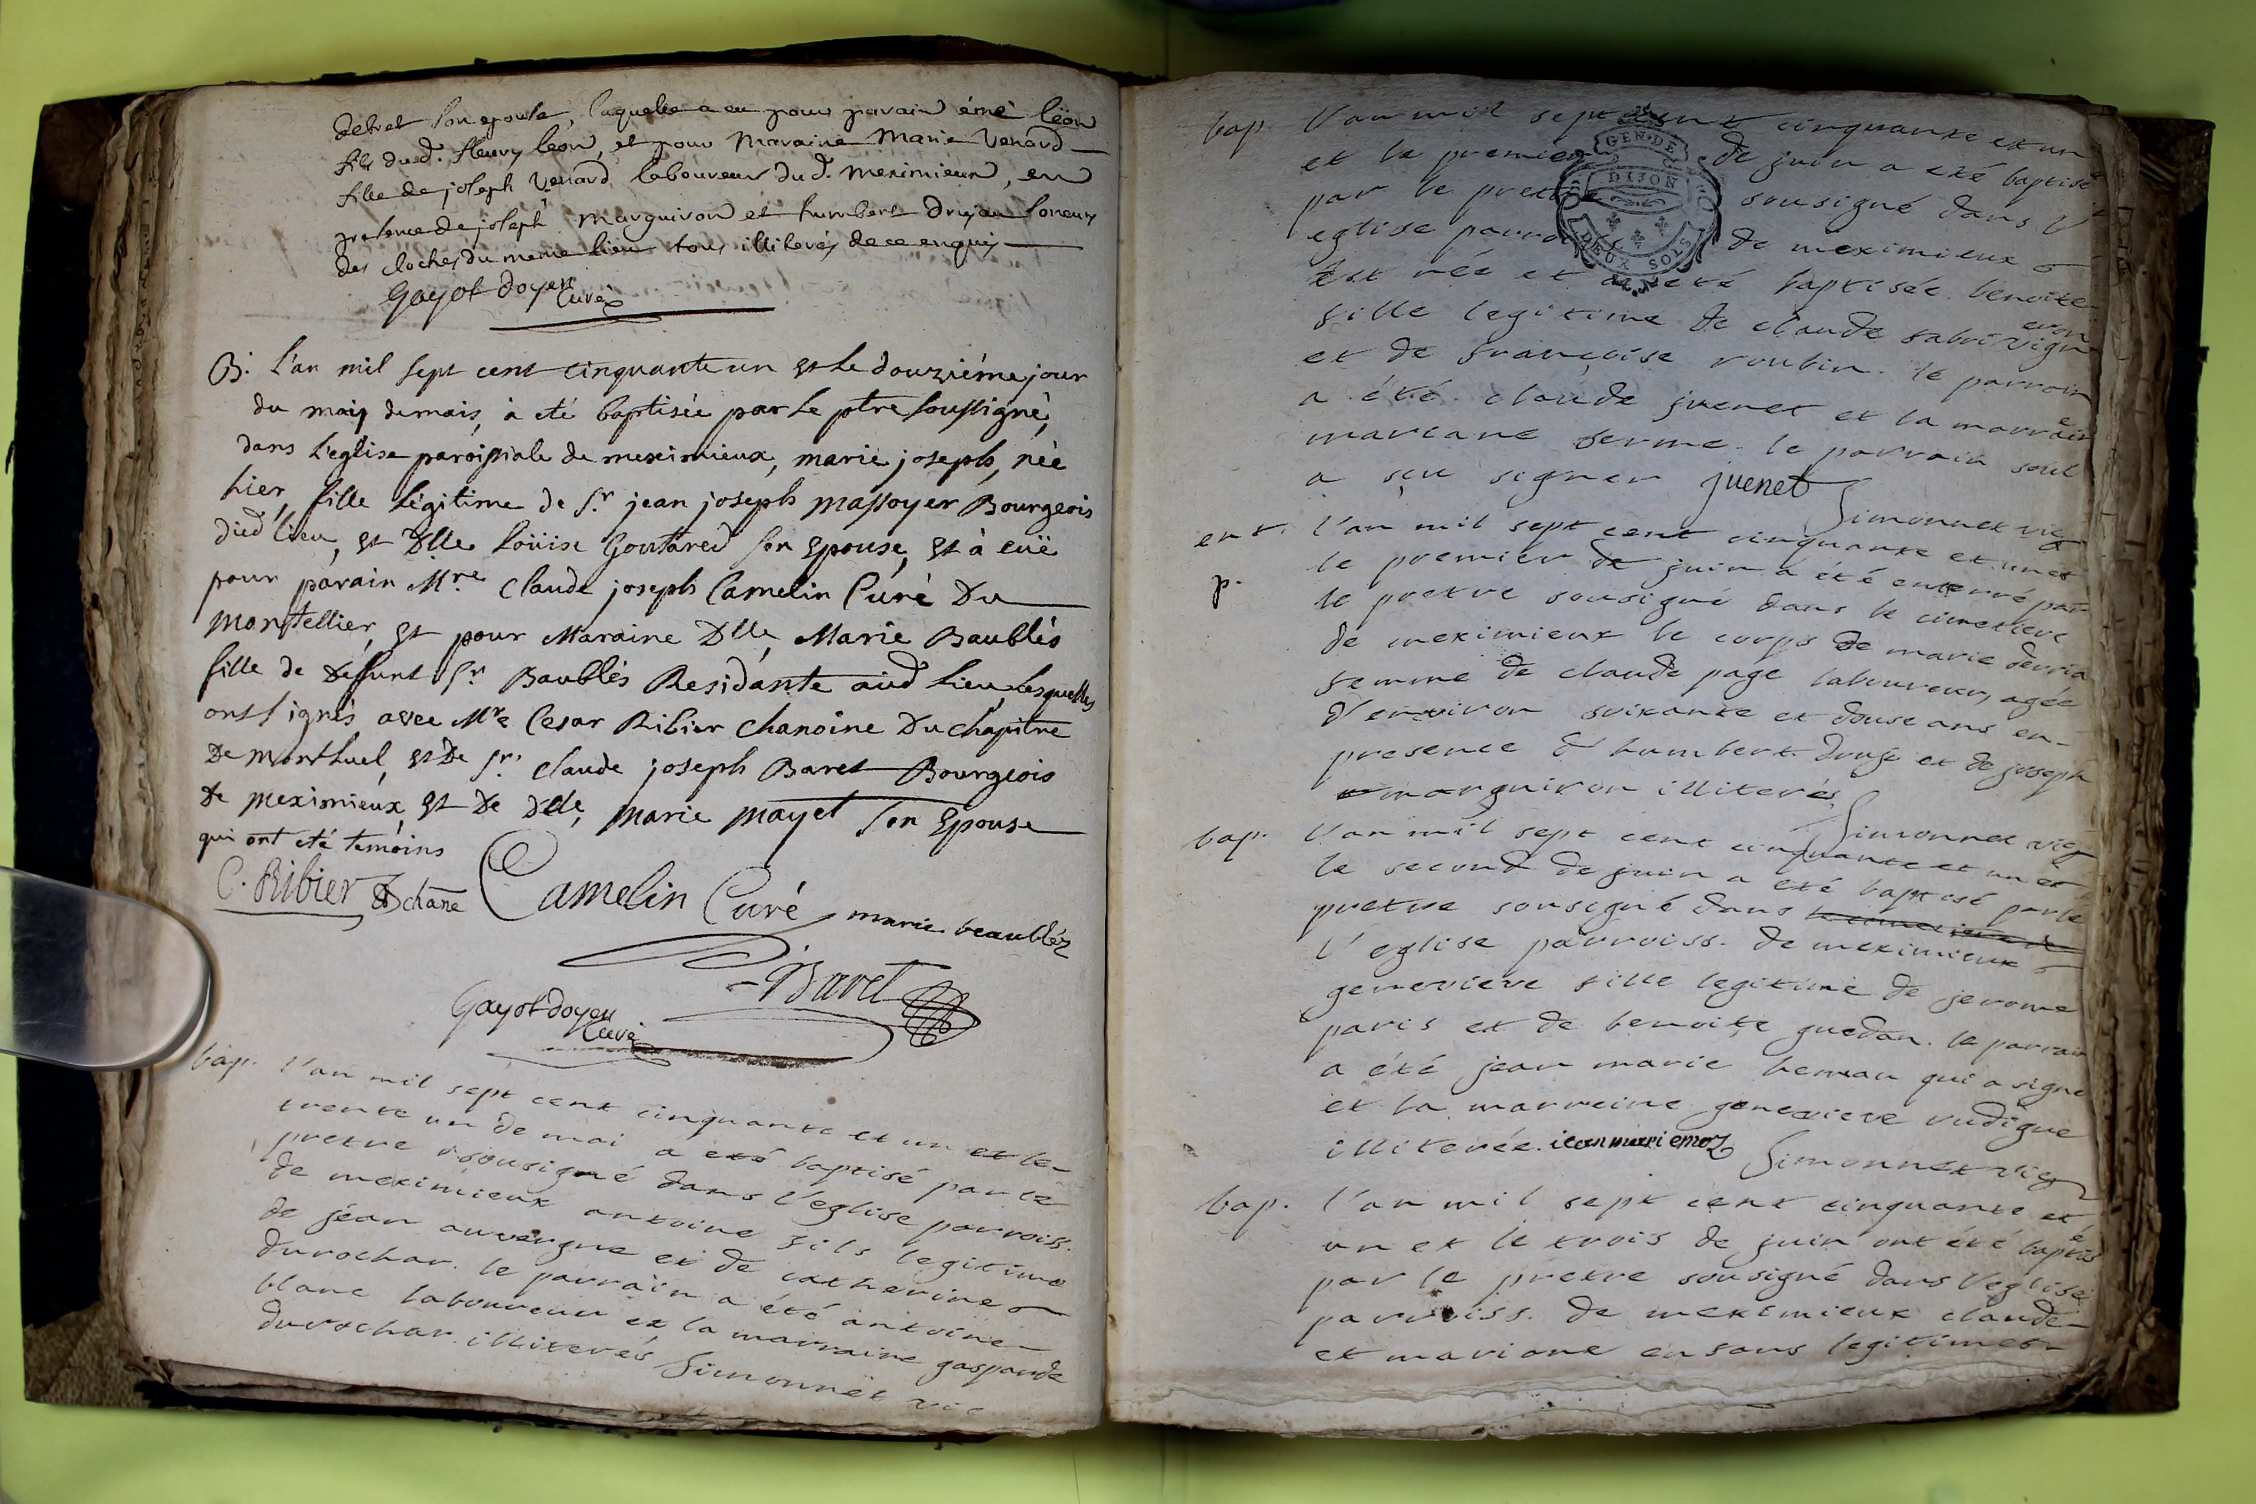 debret son epouse, laquelle a eu pour parain émé léon
fils dud. fleury leon, et pour Maraine Marie Venard
fille de joseph Venard laboureur dud. Meximieux, en
presence de joseph Marguiron et humbert drujeu soneurs
des cloches du meme lieu tous illiterés de ce enquis
Gayot doyen
Curé
B. L'an mil sept cent cinquante un et le douziéme jour
du mois de mais, à eté baptisée par le ptre soussigné,
dans l'eglise paroissiale de meximieux, marie joseph, née
hier, fille légitime de Sr. jean joseph massoyer Bourgeois
dud lieu, et Dlle Loüise Goutared son Epouse, et à euë
pour parain Mre. Claude joseph Camelin Curé Du
Montellier, et pour Maraine Dlle, Marie Baublés
fille de Défunt Sr. Baublés Residante aud lieu, lesquelles
ont signés avec Mre Cesar Ribier chanoine Du chapitre
De montluel, et De Sr. Claude joseph Baret Bourgeois
De meximieux, et De Dlle, Marie Mayet son Epouse
qui ont eté temoins
C. Ribier chãne Camelin Curé marie beaubléz
Baret
Gayot doyen
Curé
bap. l'an mil sept cent cinquante et un et le
trente un de mai a eté baptisé par le
pretre sousigné dans l'eglise parroiss.
de meximieux antoine fils legitime
de jéan auvergne et de catherine
durochar. le parrain a été antoine
blanc laboureur et la marraine gasparde
durochar illiterés Simonnet vic
bap. l'an mil sept cent cinquante et un
et le premier de juin a eté baptisé
par le pretre sousigné dans l'
eglise parroiss de meximieux
Est née et a eté baptisée benoite
fille legitime de claude fabri vigneron
et de françoise roubin. le parrain
a été claude juenet et la marraine
mariane ferme. le parrain seul
a sçu signer juenet
Simonnet vic
ent. l'an mil sept cent cinquante et un et
p. le premier de juin a été enterré par
le pretre sousigné dans le cimetiere
de meximieux le corps de marie devria
femme de claude page laboureur, agée
d'environ soixante et douse ans en
presence d'humbert et de joseph
marguiron illiterés
Simonnet vic
bap. l'an mil sept cent cinquante et un et
le second de juin a eté baptisé par le
pretre sousigné dans
l'eglise parroiss. de meximieux
genevieve fille legitime de jerome
paris et de benoite guedan. le parrain
a été jean marie hemau qui a signé
et la marreine genevieve rudigue
illiterée. iean marri emoz Simonnet vic
bap. l'an mil sept cent cinquante et
un et le trois de juin ont été baptisé
par le pretre sousigné dans l'eglise
parroiss. de meximieux claude
et mariane enfans legitimes
GEN. DE
DIJON
DEUX SOLS